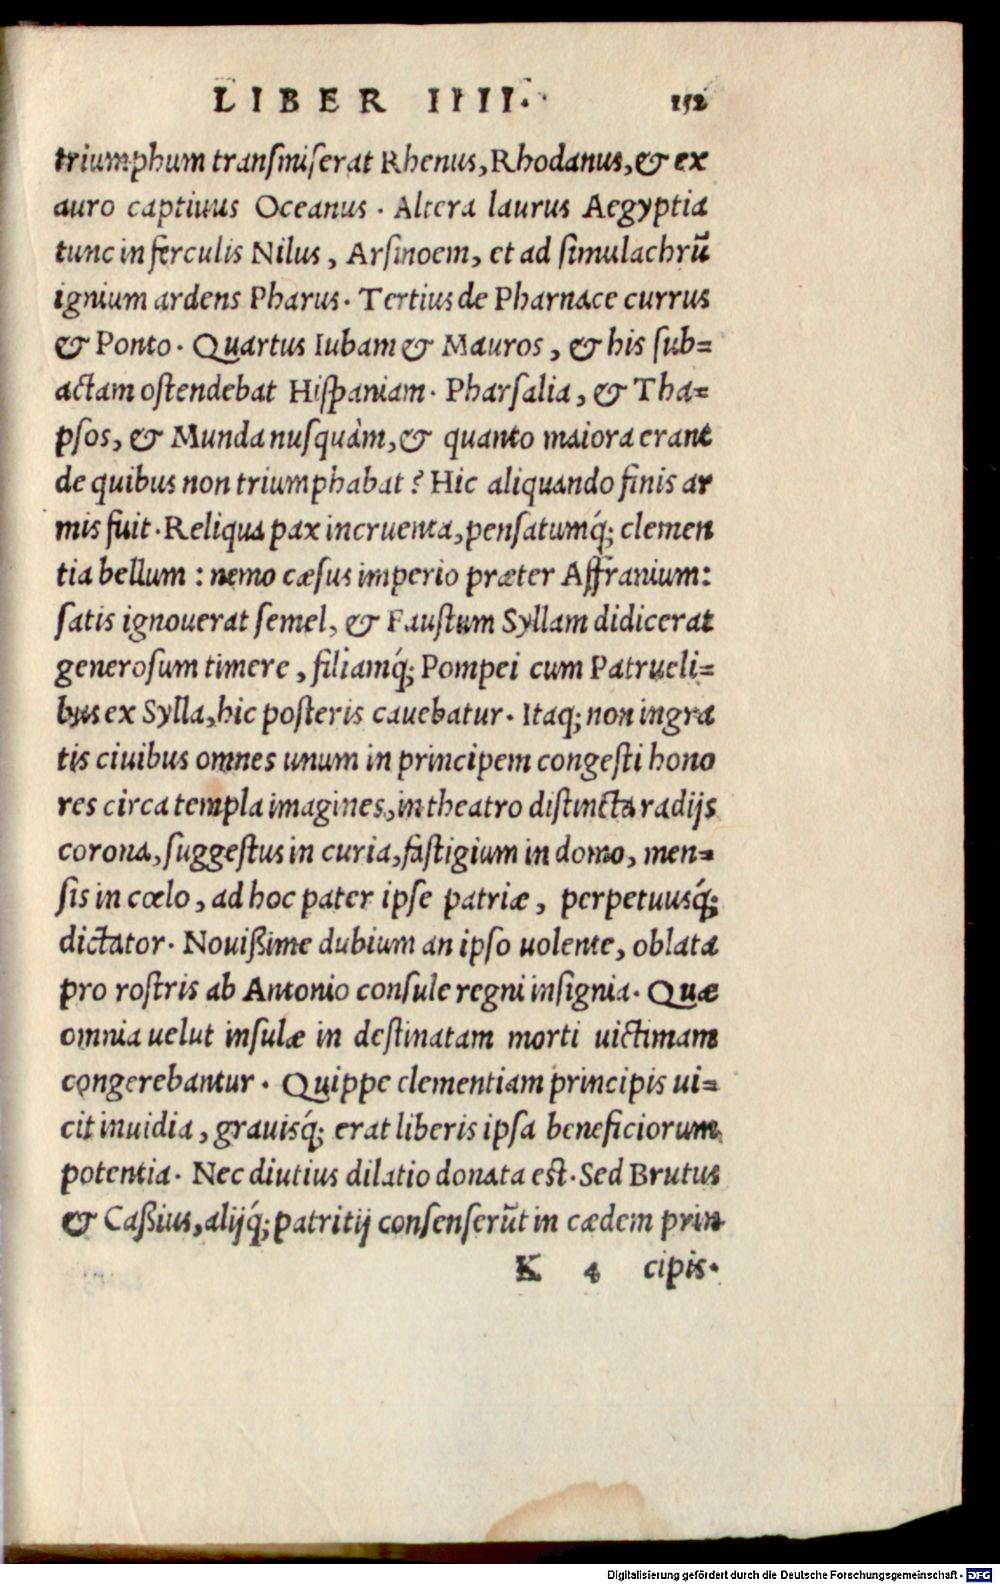 LIBER IIII. 152
triumphum transmiserat Rhenus, Rhodanus, & ex
auro captiuus Oceanus. Altera laurus Aegyptia
tunc in ferculis Nilus, Arsinoem, et ad simulachrũ
ignium ardens Pharus. Tertius de Pharnace currus
& Ponto. Quartus Iubam & Mauros, & his sub=
actam ostendebat Hispaniam. Pharsalia, & Tha=
psos, & Munda nusquàm, & quanto maiora erant
de quibus non triumphabat? Hic aliquando finis ar
mis fuit. Reliqua pax incruenta, pensatumq́; clemen
tia bellum: nemo cæsus imperio præter Affranium:
satis ignouerat semel, & Faustum Syllam didicerat
generosum timere, filiamq́; Pompei cum Patrueli=
bus ex Sylla, hic posteris cauebatur. Itaq; non ingra
tis ciuibus omnes unum in principem congesti hono
res circa templa imagines, in theatro distincta radijs
corona, suggestus in curia, fastigium in domo, men=
sis in cœlo, ad hoc pater ipse patriæ, perpetuusq́;
dictator. Nouißime dubium an ipso uolente, oblata
pro rostris ab Antonio consule regni insignia. Quæ
omnia uelut insulæ in destinatam morti uictimam
congerebantur. Quippe clementiam principis ui=
cit inuidia, grauisq́; erat liberis ipsa beneficiorum
potentia. Nec diutius dilatio donata est. Sed Brutus
& Caßius, alijq́; patritij consenserũt in cædem prin
K 4 cipis.
Digitalisierung gefördert durch die Deutsche Forschungsgemeinschaft - DFG